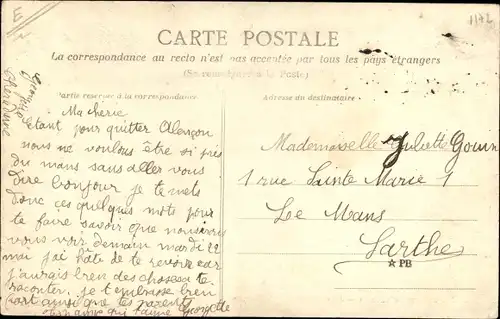 E
1172
CARTE POSTALE
La correspondance au recto n'est pas acceptée par tous les pays étrangers
(Se renseigner à la Poste)
Partie réservée à la correspondance.
Adresse du destinataire.
Ma cherie
Etant pour quitter Alençon
nous ne voulons être si près
du mans sans aller vous
dire bonjour je te mets
donc ces quelques mots pour
te faire savoir que nous irons
vous voir demain mardi 22
mai j'ai hâte de te revoir car
j'aurais bien des choses a te
raconter. je t'embrasse bien
fort ainsi que tes parents
qui t'aime Georgette
Mademoiselle Juliette Gouin
1 rue Sainte Marie 1
Le Mans
Sarthe
★ PB